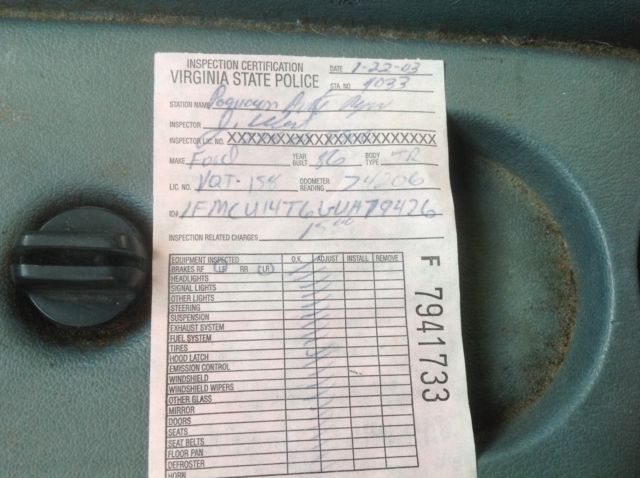 INSPECTION CERTIFICATION DATE 1-22-03
VIRGINIA STATE POLICE STA. NO 4033
STATION NAME Poquoson
INSPECTOR
INSPECTOR LIC. NO. XXXXXXXXXXXXXXXXXXXXXX
MAKE Ford YEAR BUILT 86 BODY TYPE
LIC. NO. VQT-158 ODOMETER READING 74206
ID# 1FMCU14T6GUA79426
INSPECTION RELATED CHARGES 15 00
EQUIPMENT INSPECTED O.K. ADJUST INSTALL REMOVE
BRAKES RF LF RR LR
HEADLIGHTS
SIGNAL LIGHTS
OTHER LIGHTS
STEERING
SUSPENSION
EXHAUST SYSTEM
FUEL SYSTEM
TIRES
HOOD LATCH
EMISSION CONTROL
WINDSHIELD
WINDSHIELD WIPERS
OTHER GLASS
MIRROR
DOORS
SEATS
SEAT BELTS
FLOOR PAN
DEFROSTER
HORN
F 7941733